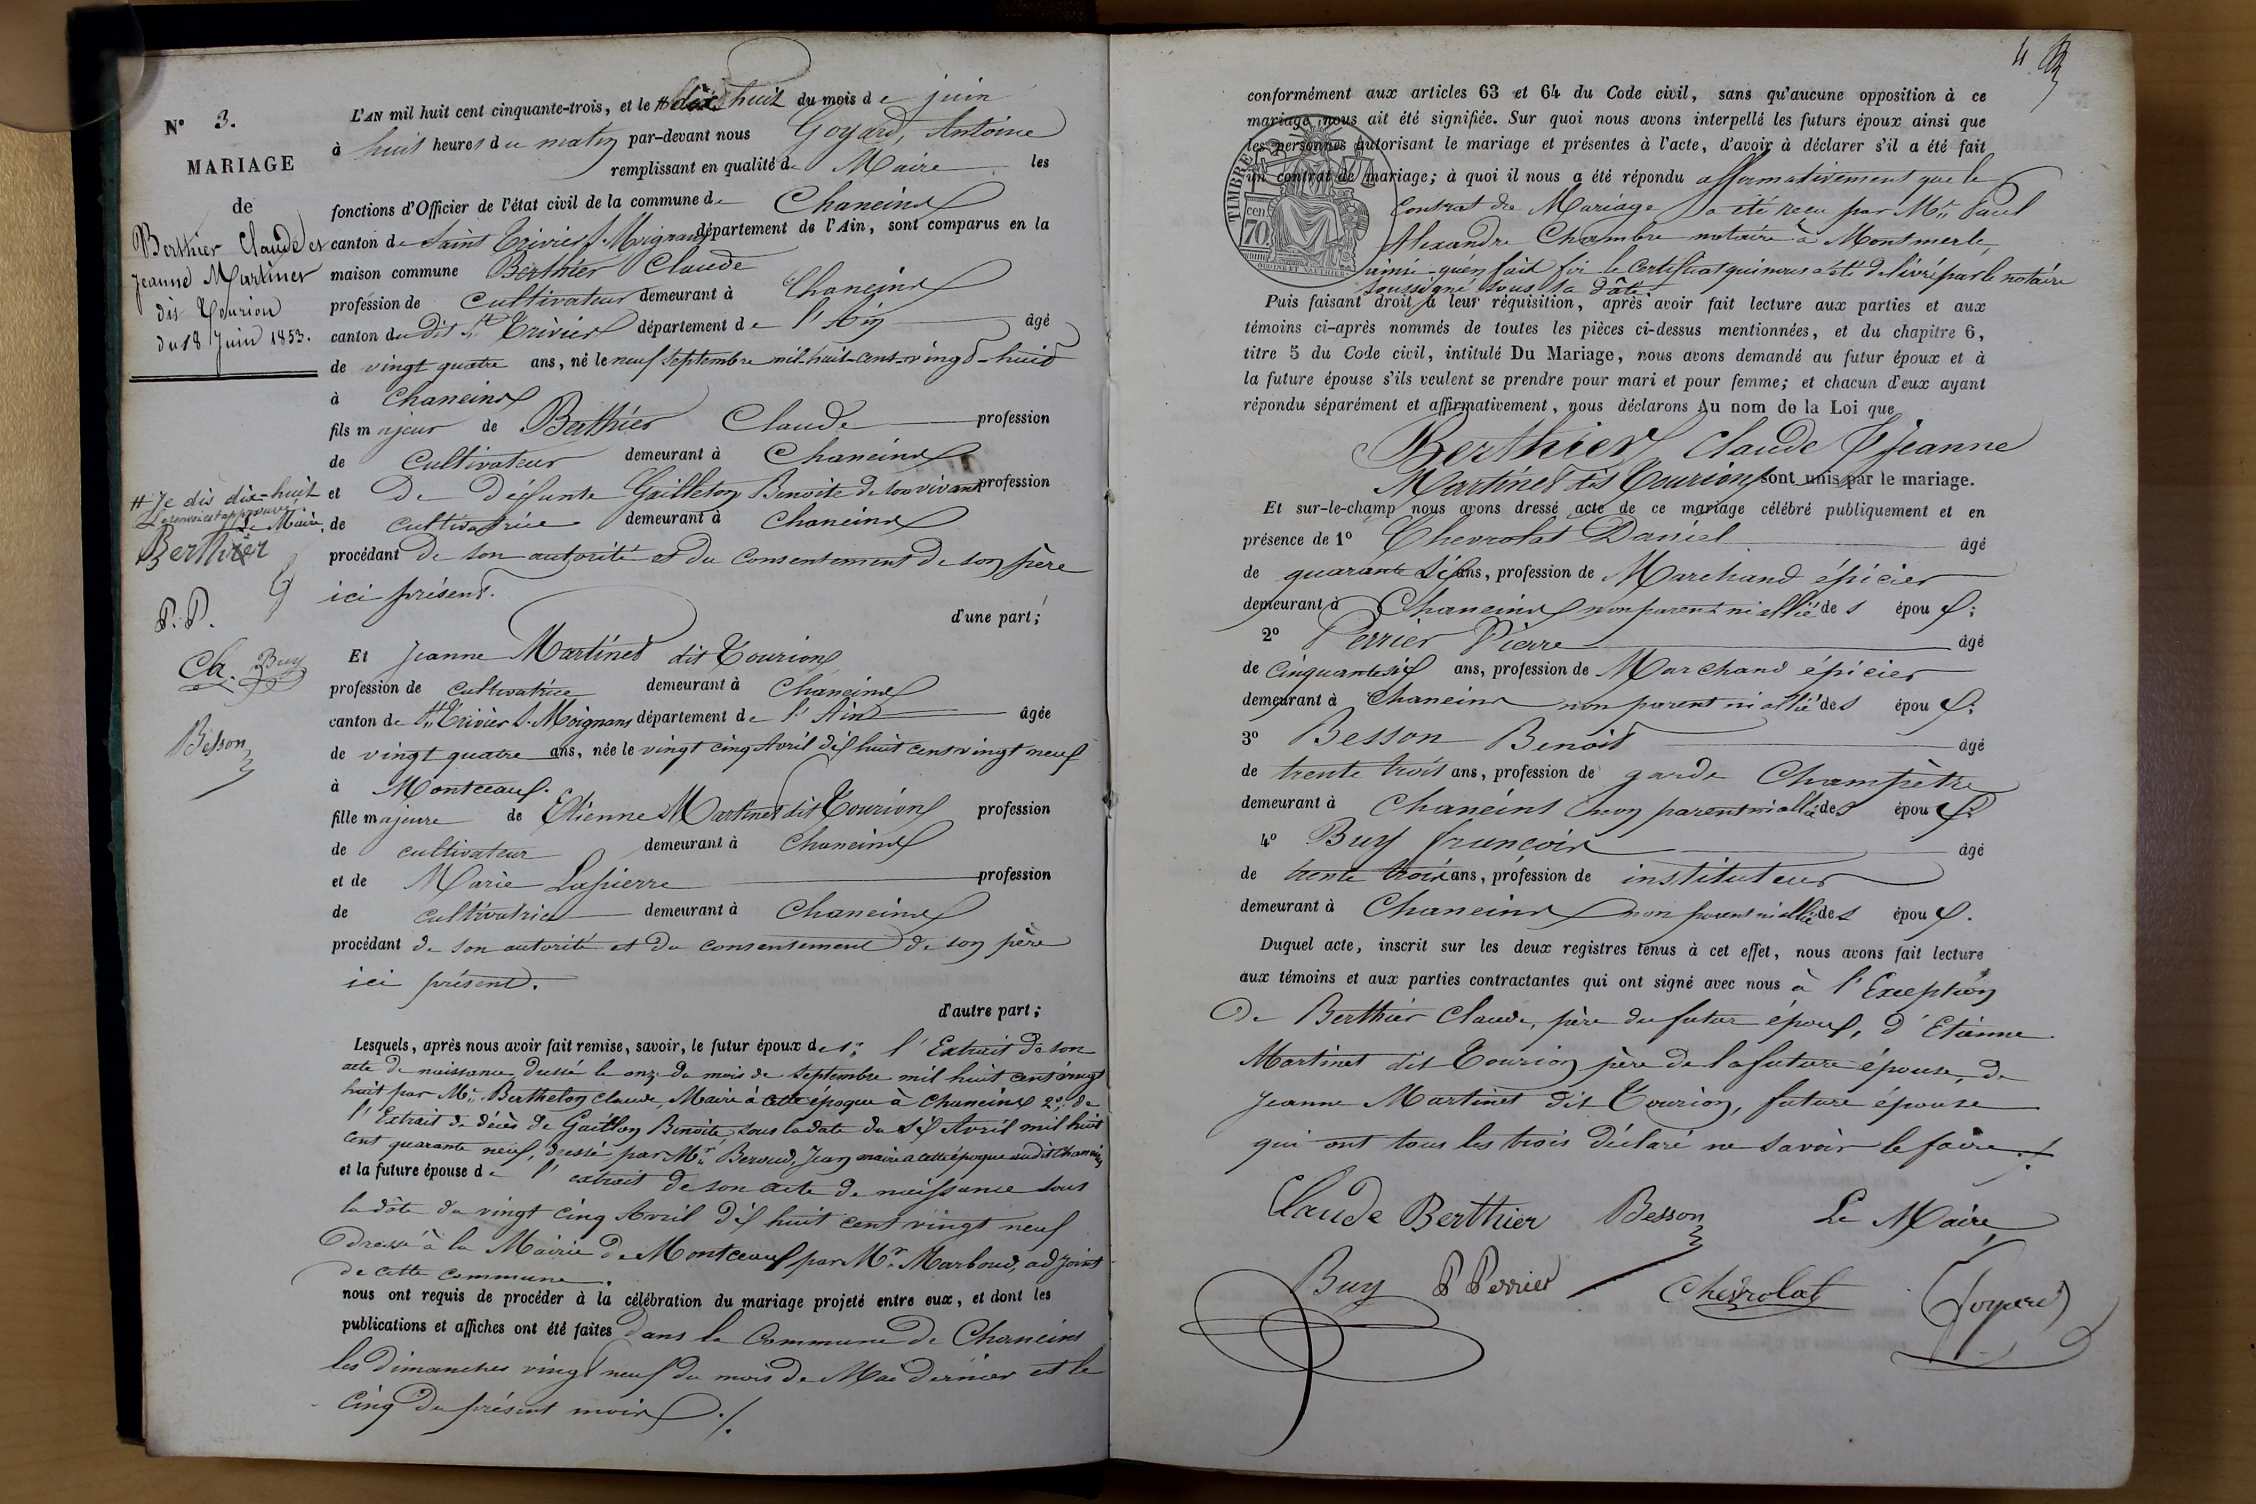 N° 3.
MARIAGE
de
Berthier Claude et
Jeanne Martinet
dit Tourion
du 18 Juin 1853.
# Je dis dix-huit
Le renvoi est approuvé
Le Maire,
Berthier
G
P. P.
Ch. Buy
Besson
L'AN mil huit cent cinquante-trois, et le # dix huit du mois de juin
à huit heures du matin par-devant nous Goyard, Antoine
remplissant en qualité de Maire les
fonctions d'Officier de l'état civil de la commune de Chaneins
canton de Saint Trivier S. Moignans département de l'Ain, sont comparus en la
maison commune Berthier Claude
profession de Cultivateur demeurant à Chaneins
canton du dit St Trivier département de l'Ain âgé
de vingt quatre ans, né le neuf Septembre mil-huit-cent-vingt-huit
à Chaneins
fils majeur de Berthier Claude profession
de Cultivateur demeurant à Chaneins
et De Défunte Gailleton Benoite de son vivant profession
de cultivatrice demeurant à Chaneins
procédant de son autorité et du consentement de son père
ici présent.
d'une part;
Et Jeanne Martinet dit Tourion
profession de cultivatrice demeurant à Chaneins
canton de St Trivier S. Moignans département de l'Ain âgée
de vingt quatre ans, née le vingt cinq Avril dix huit cent vingt neuf
à Montceaux.
fille majeure de Etienne Martinet dit Tourion profession
de cultivateur demeurant à Chaneins
et de Marie Lapierre profession
de cultivatrice demeurant à Chaneins
procédant de son autorité et du consentement de son père
ici présent.
d'autre part;
Lesquels, après nous avoir fait remise, savoir, le futur époux de 1°: l'Extrait de son
acte de naissance dressé le onze du mois de septembre mil huit cent vingt
huit par Mr. Berthelon Claude, Maire à cette époque à Chaneins 2°: de
l'Extrait de décès de Gaillton Benoite, sous la date du six Avril mil huit
cent quarante neuf, dressé par Mr. Beroud, Jean maire à cette époque audit Chaneins
et la future épouse de l'extrait de son acte de naissance sous
la dâte du vingt cinq Avril dix huit cent vingt neuf
dressé à la Mairie de Montceaux par Mr. Marboud, adjoint
de cette commune.
nous ont requis de procéder à la célébration du mariage projeté entre eux, et dont les
publications et affiches ont été faites dans la Commune de Chaneins
les dimanches vingt neuf du mois de Mai dernier et le
Cinq du présent mois ./.
4
conformément aux articles 63 et 64 du Code civil, sans qu'aucune opposition à ce
mariage nous ait été signifiée. Sur quoi nous avons interpellé les futurs époux ainsi que
les personnes autorisant le mariage et présentes à l'acte, d'avoir à déclarer s'il a été fait
un contrat de mariage; à quoi il nous a été répondu affirmativement que le
Contrat de Mariage a été reçu par Mr. Paul
Alexandre Chambre notaire à Montmerle,
ainsi qu'en fait foi le Certificat qui nous a été délivré par le notaire
soussigné sous sa dâte.
TIMBRE
cen
70.
Puis faisant droit à leur réquisition, après avoir fait lecture aux parties et aux
témoins ci-après nommés de toutes les pièces ci-dessus mentionnées, et du chapitre 6,
titre 5 du Code civil, intitulé Du Mariage, nous avons demandé au futur époux et à
la future épouse s'ils veulent se prendre pour mari et pour femme; et chacun d'eux ayant
répondu séparément et affirmativement, nous déclarons Au nom de la Loi que
Berthier Claude & Jeanne
Martinet dit Tourion sont unis par le mariage.
Et sur-le-champ nous avons dressé acte de ce mariage célébré publiquement et en
présence de 1° Chevrolat Daniel âgé
de quarante six ans, profession de Marchand épicier
demeurant à Chaneins non parent ni allié des époux;
2° Perrier Pierre âgé
de Cinquante six ans, profession de Marchand épicier
demeurant à Chaneins non parent ni allié des époux;
3° Besson Benoit âgé
de trente trois ans, profession de garde Champètre
demeurant à Chaneins non parent ni allié des époux;
4° Buy françois âgé
de trente trois ans, profession de instituteur
demeurant à Chaneins non parent ni allié des époux.
Duquel acte, inscrit sur les deux registres tenus à cet effet, nous avons fait lecture
aux témoins et aux parties contractantes qui ont signé avec nous à l'Exception
De Berthier Claude, père du futur époux, d'Etienne
Martinet dit Tourion père de la future épouse, de
Jeanne Martinet dit Tourion, future épouse
qui ont tous les trois déclaré ne savoir le faire ./.
Claude Berthier Besson Le Maire
Buy P Perrier Chevrolat Goyard